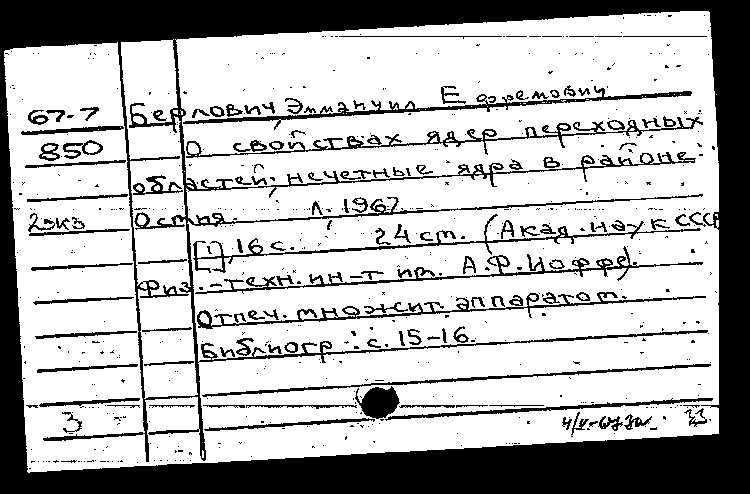 67-7 Берлович, Эммануил Ефремович
850 О свойствах ядер переходных
областей; нечетные ядра в районе
2экз Остия. Л., 1967.
[1], 16 с. 24 ст. (Акад. наук СССР
Физ.-техн. ин-т им. А.Ф. Иоффе).
Отпеч. множит. аппаратом.
Библиогр.: с. 15-16.
3